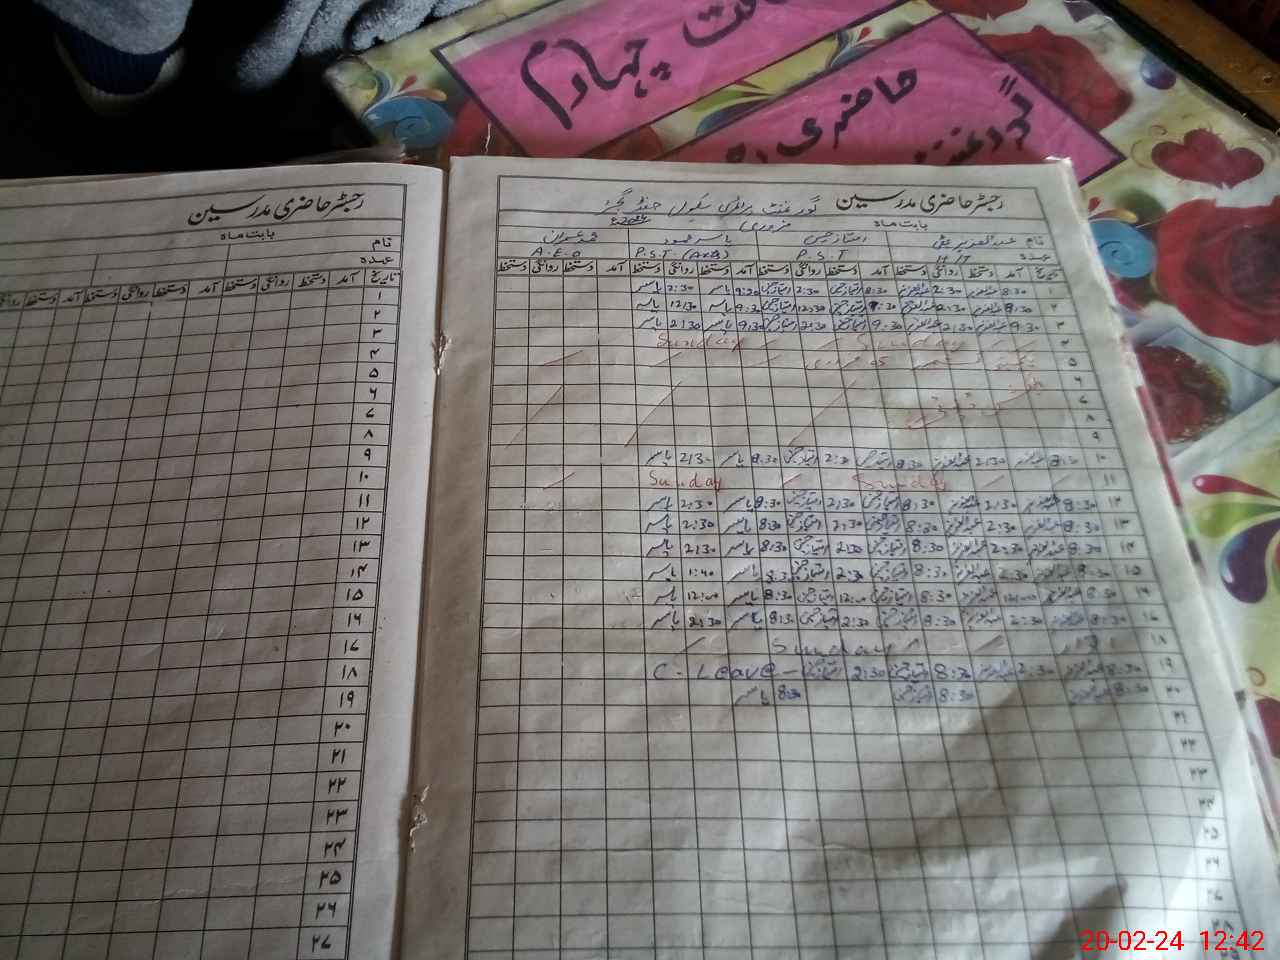 جماعت چہارم
حاضری
گورنمنٹ
رجسٹر حاضری مدرسین
بابت ماہ
نام
عہدہ
تاریخ آمد دستخط روانگی دستخط آمد دستخط روانگی دستخط آمد دستخط روانگی
۱
۲
۳
۴
۵
۶
۷
۸
۹
۱۰
۱۱
۱۲
۱۳
۱۴
۱۵
۱۶
۱۷
۱۸
۱۹
۲۰
۲۱
۲۲
۲۳
۲۴
۲۵
۲۶
۲۷
رجسٹر حاضری مدرسین گورنمنٹ پرائمری سکول
بابت ماہ فروری 2024
نام عبدالعزیز امتیاز حسین یاسر محمود محمد عمران
عہدہ P.S.T P.S.T. A.E.O
تاریخ آمد دستخط روانگی دستخط آمد دستخط روانگی دستخط آمد دستخط روانگی دستخط آمد دستخط روانگی دستخط
۱ 8:30 عبدالعزیز 2:30 عبدالعزیز 8:30 امتیاز حسین 2:30 امتیاز حسین یاسر 2:30 یاسر
۲ عبدالعزیز عبدالعزیز امتیاز حسین 12:30 امتیاز حسین یاسر 12:30 یاسر
۳ 9:30 عبدالعزیز 2:30 عبدالعزیز 9:30 امتیاز حسین 2:30 امتیاز حسین 9:30 یاسر 2:30 یاسر
۴ Sunday Sunday
۵ 05 فروری
۶
۷
۸
۹
۱۰ 8:30 عبدالعزیز 2:30 عبدالعزیز 8:30 امتیاز حسین 2:30 امتیاز حسین 8:30 یاسر 2:30 یاسر
۱۱ Sunday Sunday
۱۲ 8:30 عبدالعزیز 2:30 عبدالعزیز 8:30 امتیاز حسین 2:30 امتیاز حسین 8:30 یاسر 2:30 یاسر
۱۳ 8:30 عبدالعزیز 2:30 عبدالعزیز 8:30 امتیاز حسین 2:30 امتیاز حسین 8:30 یاسر 2:30 یاسر
۱۴ 8:30 عبدالعزیز 2:30 عبدالعزیز 8:30 امتیاز حسین 2:30 امتیاز حسین 8:30 یاسر 2:30 یاسر
۱۵ 8:30 عبدالعزیز 2:30 عبدالعزیز 8:30 امتیاز حسین 2:30 امتیاز حسین 8:30 یاسر 1:40 یاسر
۱۶ 8:30 عبدالعزیز 12:00 عبدالعزیز 8:30 امتیاز حسین 12:00 امتیاز حسین 8:30 یاسر 12:00 یاسر
۱۷ 8:30 عبدالعزیز 2:30 عبدالعزیز 8:30 امتیاز حسین 2:30 امتیاز حسین 8:30 یاسر 2:30 یاسر
۱۸ Sunday
۱۹ 8:30 عبدالعزیز 2:30 عبدالعزیز 8:30 امتیاز حسین 2:30 امتیاز حسین C. Leave
۲۰ 8:30 عبدالعزیز 8:30 امتیاز حسین 8:30 یاسر
۲۱
۲۲
۲۳
۲۴
۲۵
۲۶
۲۷
۲۸
20-02-24 12:42